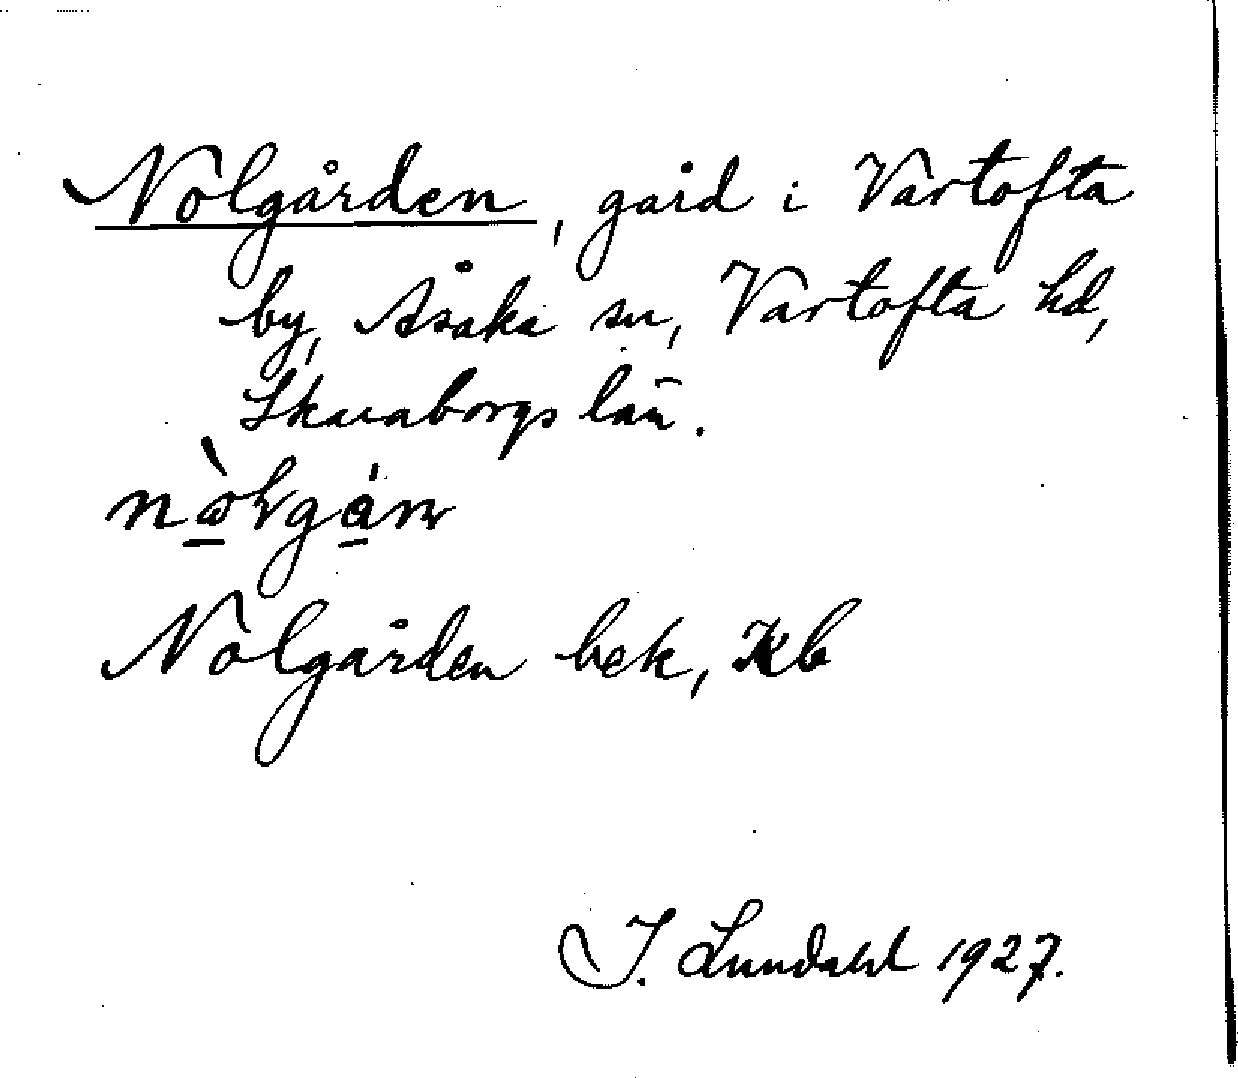 Nolgården, gård i Vartofta
by, Åsaka sn, Vartofta hd,
Skaraborgs län.
Nolgården bek, Kb
I. Lundahl 1927.